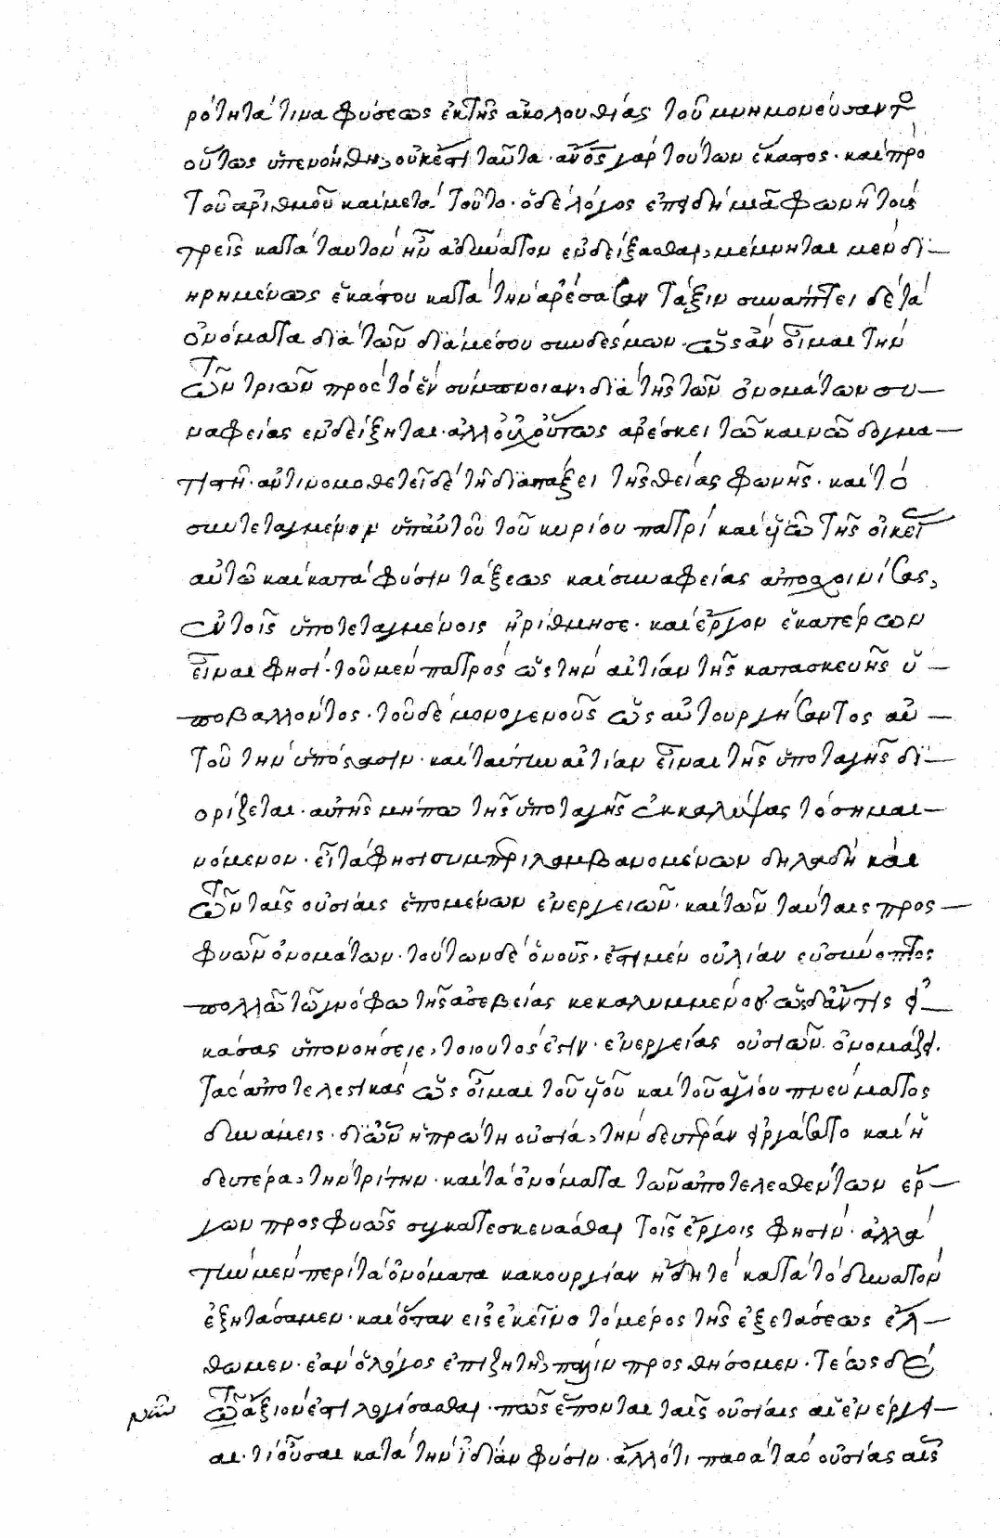 ρότητά τινα φύσεως ἐκ τῆς ἀκολουθίας τοῦ μνημονεύσαντο
οὕτως ὑπενοήθη, οὐκ ἔστι ταῦτα· ἄνος γάρ τούτων ἕκαστος· καὶ πρὸ
τοῦ ἀριθμοῦ καὶ μετὰ τοῦτο· ὁ δὲ λόγος ἐπειδὴ μιᾶ φωνῆ τοὺς
τρεῖς κατὰ ταυτὸν ἦν ἀδύνατον ἐνδείξασθαι, μέμνηται μὲν δι–
ηρημένως ἑκάστου κατὰ τὴν ἀρέσασαν τάξιν συνάπτει δὲ τὰ
ὀνόματα διὰ τῶν διὰ μέσου συνδέσμων· ὡς ἂν οἶμαι τὴν
τῶν τριῶν πρὸς τὸ ἓν σύμπνοιαν, διὰ τῆς τῶν ὀνομάτων συ–
ναφείας ἐνδείξηται· ἀλλ' οὐχ οὕτως ἀρέσκει τῶ καινῶ δογμα–
τιστῆ· ἀντινομοθετεῖ δὲ τῆ διατάξει τῆς θείας φωνῆς· καὶ τὸ
συντεταγμένον ὑπ' αὐτοῦ τοῦ κυρίου πατρὶ καὶ υἱῶ τῆς οἰκεί
αὐτῶ καὶ κατὰ φύσιν τάξεως καὶ συναφείας ἀποσχοινίσας,
ἐν τοῖς ὑποτεταγμένοις ἠρίθμησε· καὶ ἔργον ἑκατέρων
εἶναι φησὶ· τοῦ μὲν πατρὸς ὡς τὴν αἰτίαν τῆς κατασκευῆς ὑ–
ποβαλλόντος· τοῦ δὲ μονογενοῦς ὡς αὐτουργήσαντος αὐ–
τοῦ τὴν ὑπόστασιν· καὶ ταύτην αἰτίαν εἶναι τῆς ὑποταγῆς δι–
ορίζεται· αὐτῆς μήπω τῆς ὑποταγῆς ἐκκαλύψας τὸ σημαι–
νόμενον· εἶτα φησὶ συμπεριλαμβανομένων δηλαδὴ καὶ
τῶν ταῖς οὐσίαις ἑπομένων ἐνεργειῶν· καὶ τῶν ταύταις προς–
φυῶν ὀνομάτων· τούτων δὲ ὁ νοῦς, ἔστι μὲν οὐ λίαν εὐσύνοπτος
πολλῶ τῶ γνόφω τῆς ἀσεβείας κεκαλυμμένου· ὡς δ' ἄν τις εἰ–
κάσας ὑπονοήσειε, τοιουτός ἐστιν· ἐνεργείας οὐσιῶν ὀνομάζει
τὰς ἀποτελεστικὰς ὡς οἶμαι τοῦ υἱοῦ καὶ τοῦ ἁγίου πνεύματος
δυνάμεις· δι' ὧν ἡ πρώτη οὐσία, τὴν δευτέραν εἰργάσατο καὶ ἡ
δευτέρα, τὴν τρίτην· καὶ τὰ ὀνόματα τῶν ἀποτελεσθέντων ἔρ–
γων προσφυῶς συγκατεσκευάσθαι τοῖς ἔργοις φησίν· ἀλλὰ
τὴν μὲν περὶ τὰ ὀνόματα κακουργίαν ἤδη τὲ κατὰ τὸ δυνατὸν
ἐξητάσαμεν· καὶ ὅταν εἰς ἐκεῖνο τὸ μέρος τῆς ἐξετάσεως ἔλ–
θωμεν· ἐὰν ὁ λόγος ἐπιζητῆ, πάλιν προσθήσομεν· τέως δὲ
τῶ ἄξιον ἐστὶ λογίσασθαι· πῶς ἕπονται ταῖς οὐσίαις αἱ ἐνέργει–
αι· τί οὖσαι κατὰ τὴν ἰδίαν φύσιν· ἄλλό τι παρὰ τὰς οὐσίας αἷς